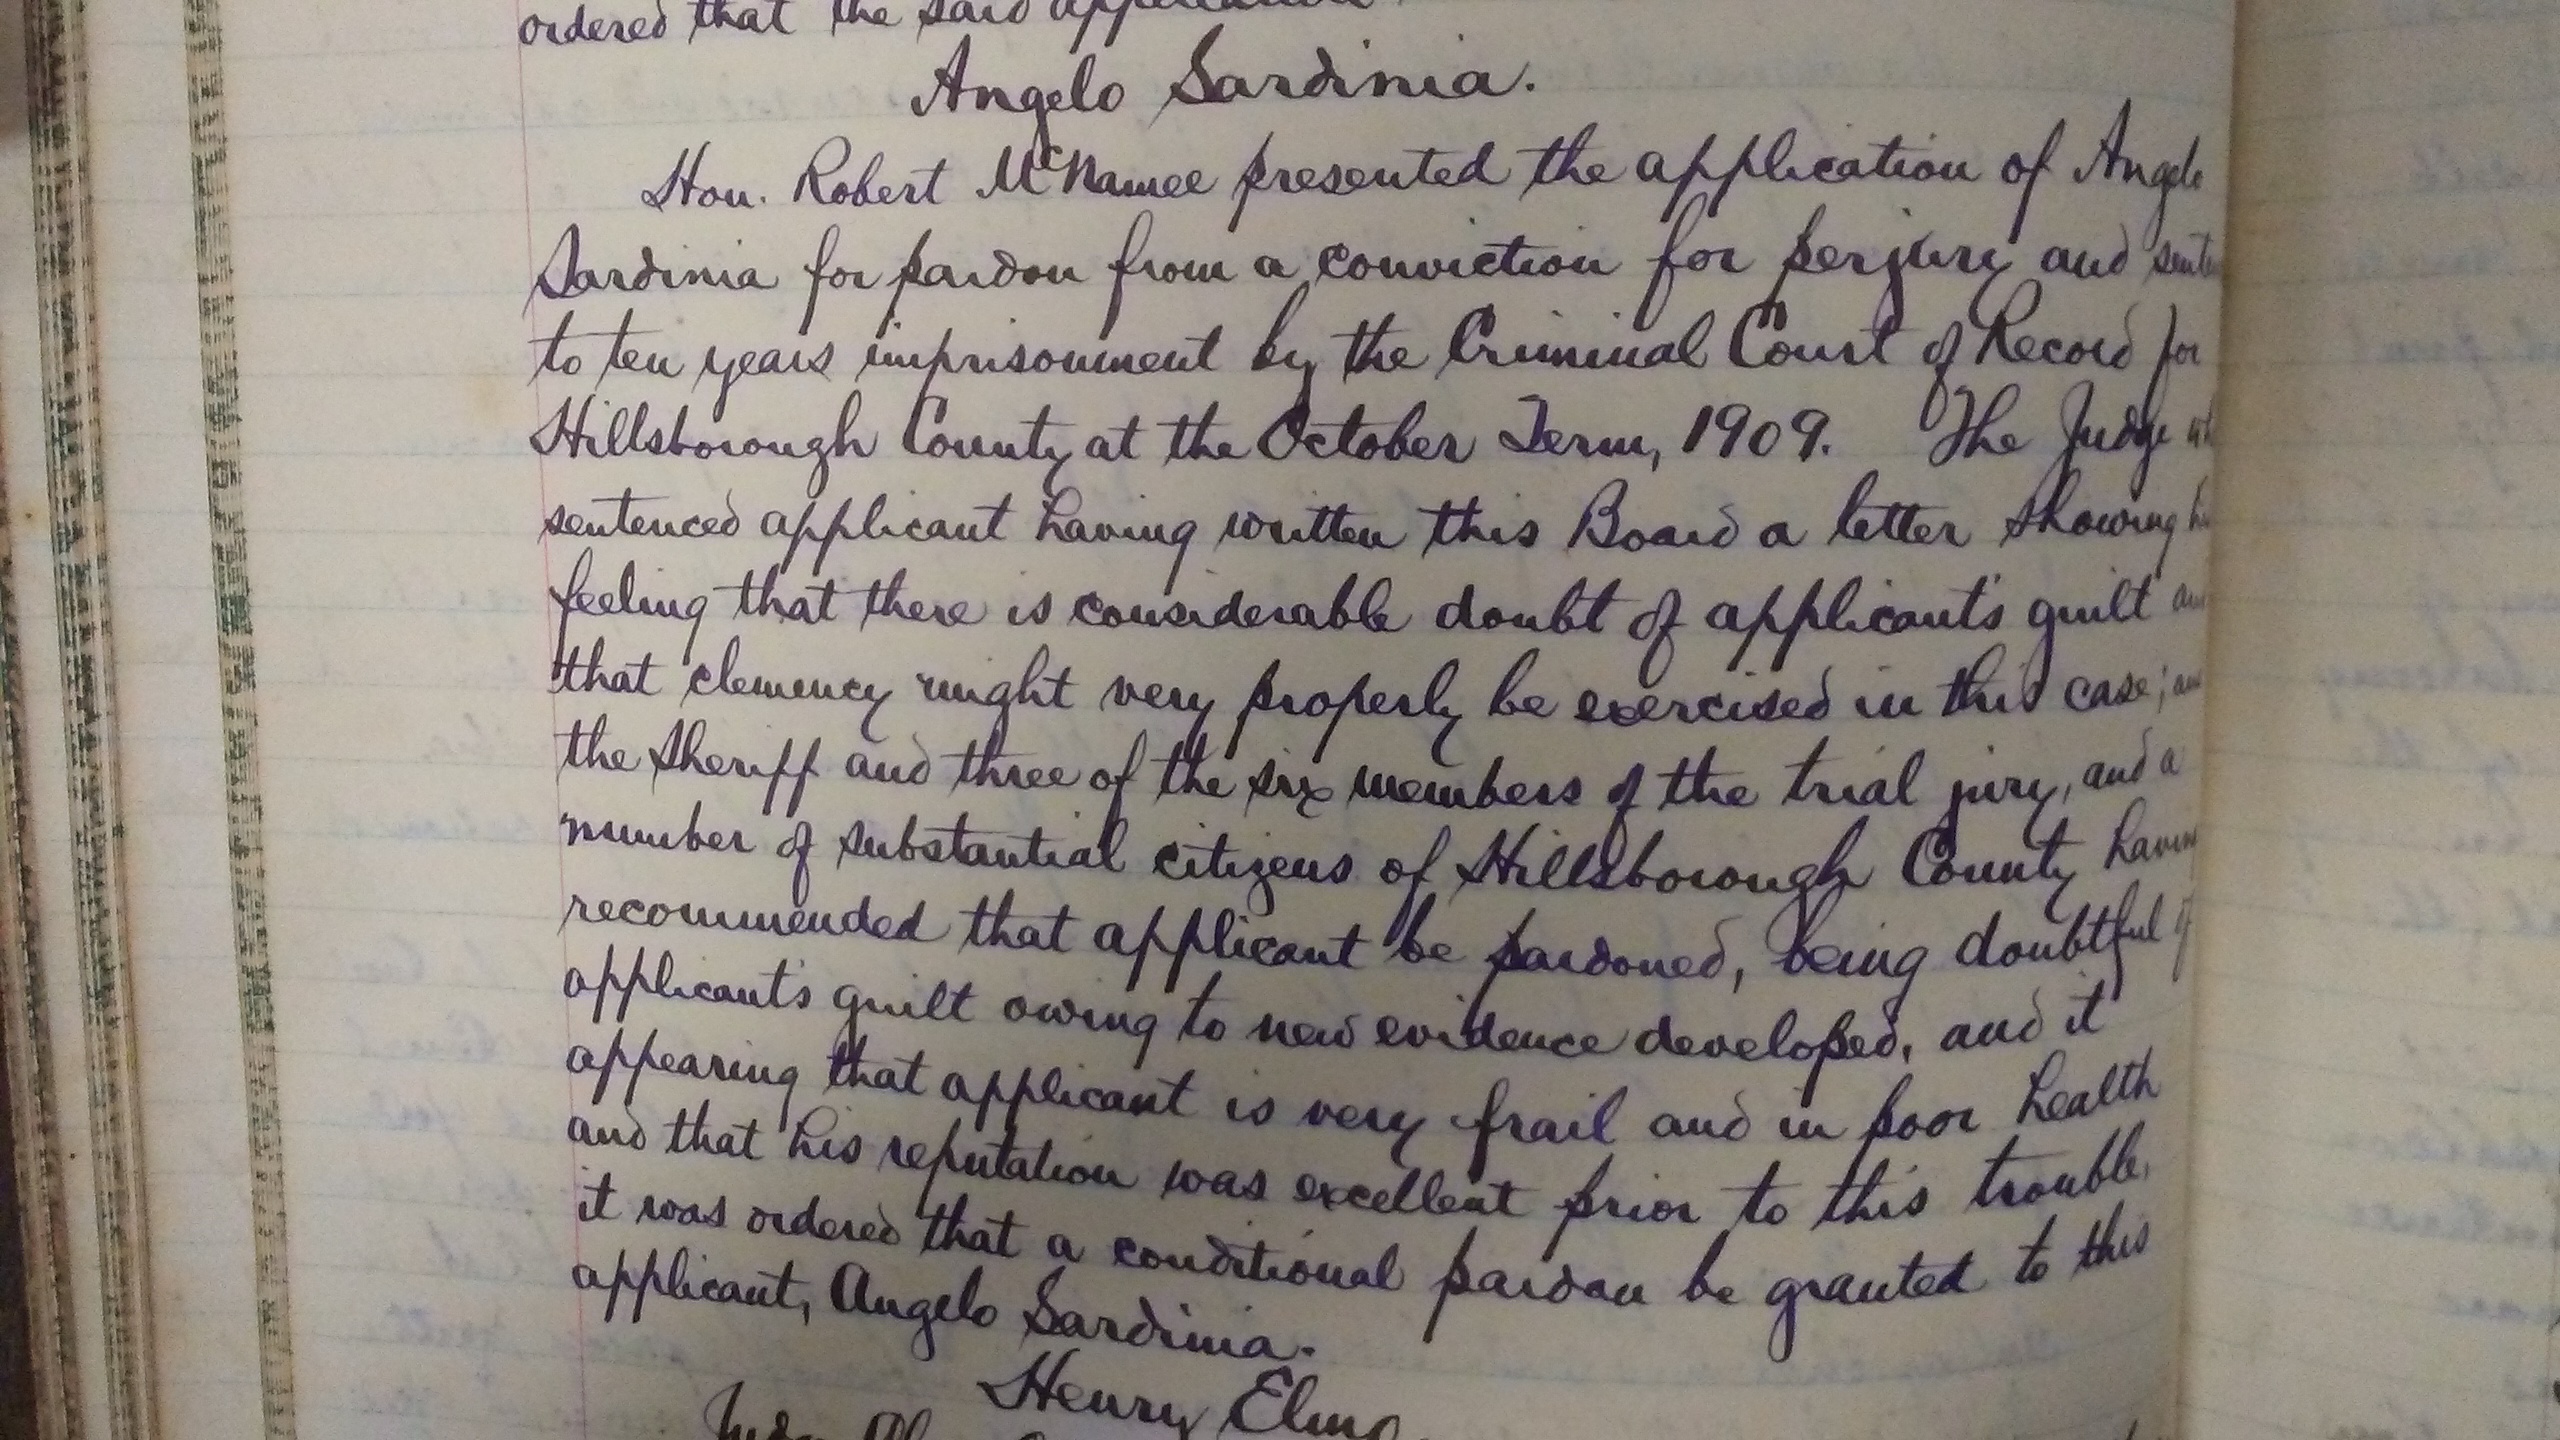 ordered that the said application
Angelo Sardinia.
Hon. Robert McNamee presented the application of Angelo
Sardinia for pardon from a conviction for perjury and
to ten years imprisonment by the Criminal Court of Record for
Hillsborough County at the October Term, 1909. The Judge
sentenced applicant having written this Board a letter showing
feeling that there is considerable doubt of applicant's guilt
that clemency might very properly be exercised in this case;
the Sheriff and three of the six members of the trial jury, and a
number of substantial citizens of Hillsborough County having
recommended that applicant be pardoned, being doubtful of
applicant's guilt owing to new evidence developed, and it
appearing that applicant is very frail and in poor health
and that his reputation was excellent prior to this trouble,
it was ordered that a conditional pardon be granted to this
applicant, Angelo Sardinia.
Henry